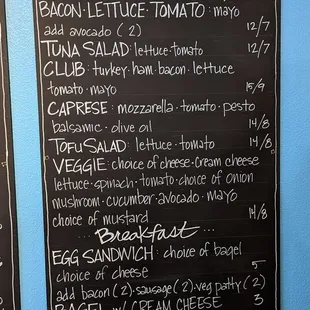 BACON·LETTUCE·TOMATO: mayo
add avocado (2) 12/7
TUNA SALAD: lettuce·tomato 12/7
CLUB: turkey·ham·bacon·lettuce
tomato·mayo 15/9
CAPRESE: mozzarella·tomato·pesto
balsamic·olive oil 14/8
TOFU SALAD: lettuce·tomato 14/8
VEGGIE: choice of cheese·cream cheese
lettuce·spinach·tomato·choice of onion
mushroom·cucumber·avocado·mayo
choice of mustard 14/8
...Breakfast...
EGG SANDWICH: choice of bagel
choice of cheese 5
add bacon (2)·sausage (2)·veg patty (2)
BAGEL w/ CREAM CHEESE 3